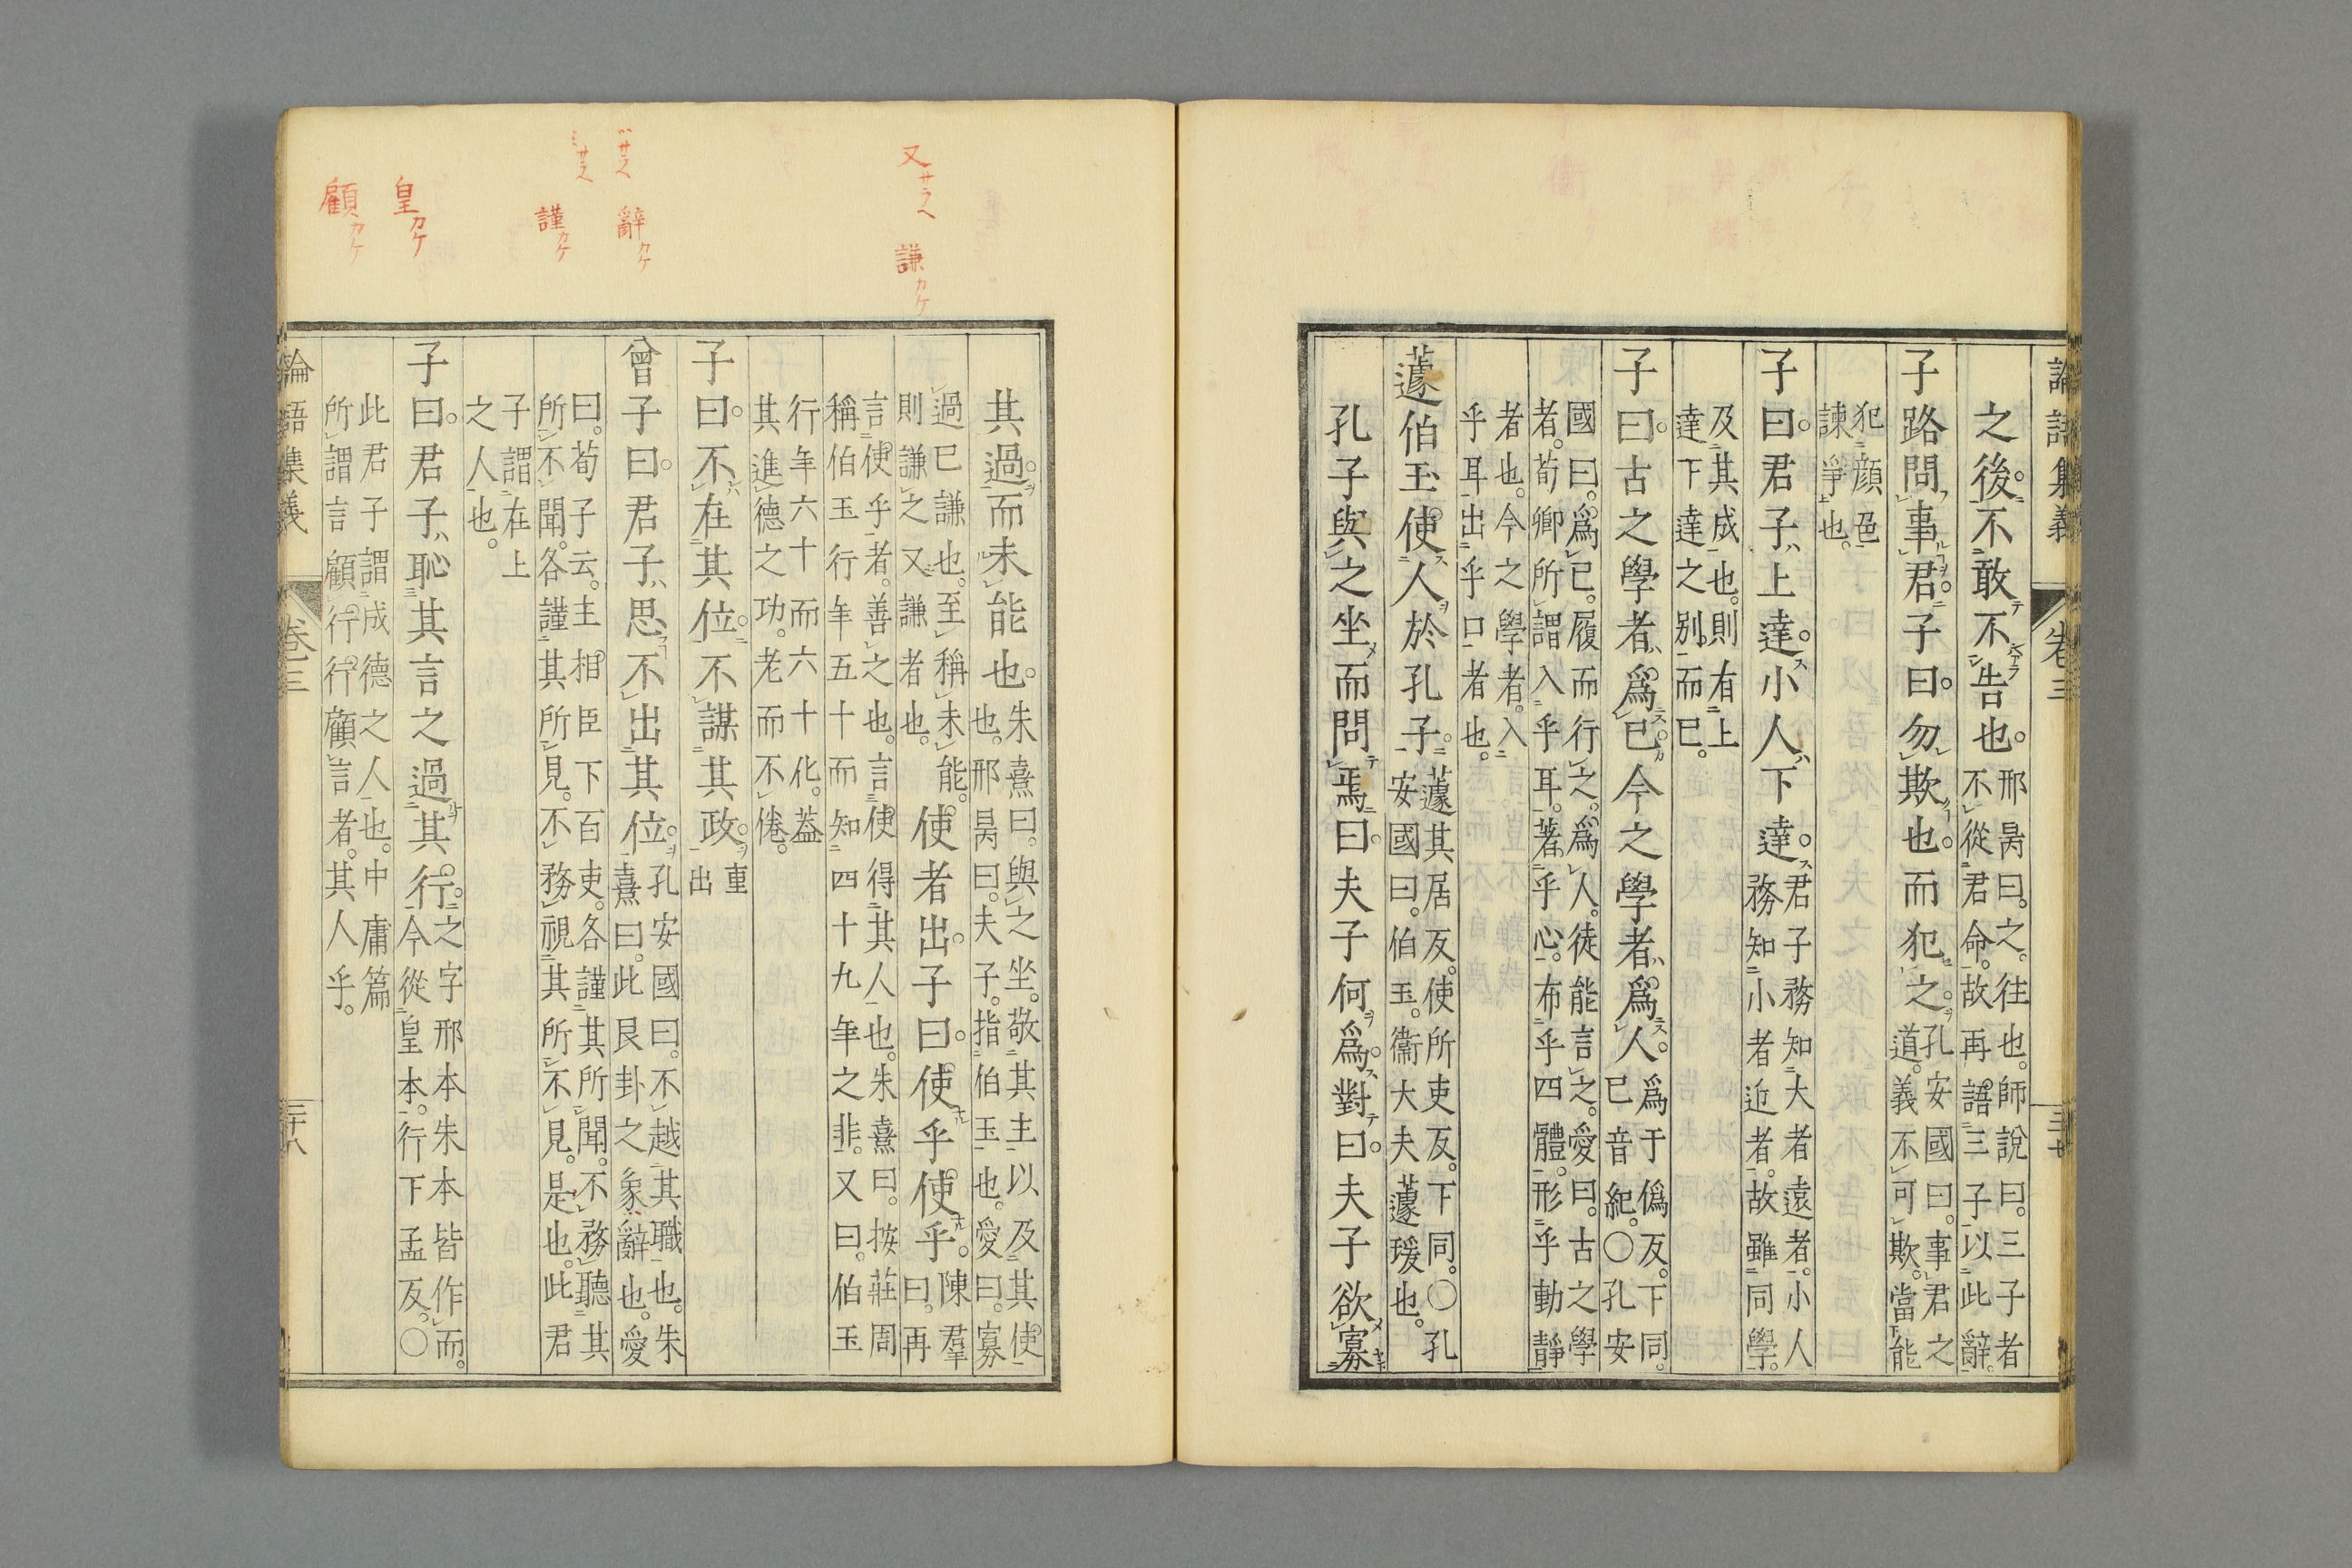 論語集義 卷三 三十七
之後。不敢不告也。邢昺曰。之。往也。師說曰。三子者
不從君命。故再語三子以此辭。
子路問事君。子曰。勿欺也。而犯之。孔安國曰。事君之
道。義不可欺。當能
犯顏色
諫爭也。
子曰。君子上達。小人下達。君子務知大者遠者。小人
務知小者近者。故雖同學。
及其成也。則有上
達下達之別而已。
子曰。古之學者。爲已。今之學者。爲人。爲于僞反。下同。
已音紀。〇孔安
國曰。爲已。履而行之。爲人。徒能言之。愛曰。古之學
者。荀卿所謂入乎耳。著乎心。布乎四體。形乎動靜
者也。今之學者。入
乎耳出乎口者也。
蘧伯玉使人於孔子。蘧其居反。使所吏反。下同。〇孔
安國曰。伯玉。衞大夫蘧瑗也。
孔子與之坐而問焉。曰。夫子何爲。對曰。夫子欲寡
其過。而未能也。朱熹曰。與之坐。敬其主以及其使
也。邢昺曰。夫子。指伯玉也。愛曰。寡
過已謙也。至稱未能。
則謙之又謙者也。
使者出。子曰。使乎使乎。陳羣
曰。再
言使乎者。善之也。言使得其人也。朱熹曰。按莊周
稱伯玉行年五十而知四十九年之非。又曰。伯玉
行年六十而六十化。蓋
其進德之功。老而不倦。
子曰。不在其位。不謀其政。重
出
曾子曰。君子思不出其位。孔安國曰。不越其職也。朱
熹曰。此艮卦之象辭也。愛
曰。荀子云。主相臣下百吏。各謹其所聞。不務聽其
所不聞。各謹其所見。不務視其所不見。是也。此君
子謂在上
之人也。
子曰。君子恥其言之過其行。之字邢本朱本皆作而。
今從皇本。行下孟反。〇
此君子謂成德之人也。中庸篇
所謂言顧行。行顧言者。其人乎。
論語集義 卷三 三十八
又サラヘ 謙カケ
サラヘ 辭カケ
サラヘ 謹カケ
皇カケ
顧カケ